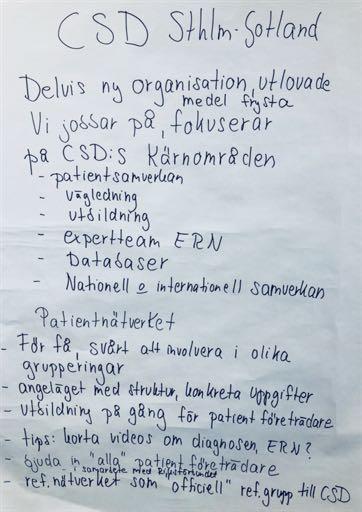 CSD Sthlm-Gotland
Delvis ny organisation, utlovade
medel frysta
Vi jobbar på, fokuserar
på CSD:s Kärnområden
- patientsamverkan
- vägledning
- utbildning
- expertteam ERN
- Databaser
- Nationell o internationell samverkan
Patientnätverket
- För få, svårt att involvera i olika
grupperingar
- angeläget med struktur, konkreta uppgifter
- utbildning på gång för patient företrädare
- tips: korta videos om diagnosen, ERN?
- bjuda in "alla" patientföreträdare
i samarbete med Riksförbundet
- ref.nätverket som "officiell" ref.grupp till CSD